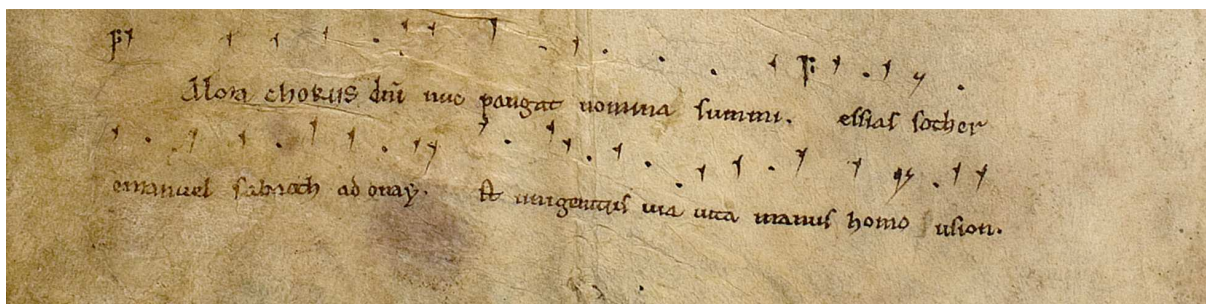 Alma chorus dñi nuc pangat nomina summi. essias sother
emanuel sabaoth adonay. Et unigenitus uia uita manus homo usion.